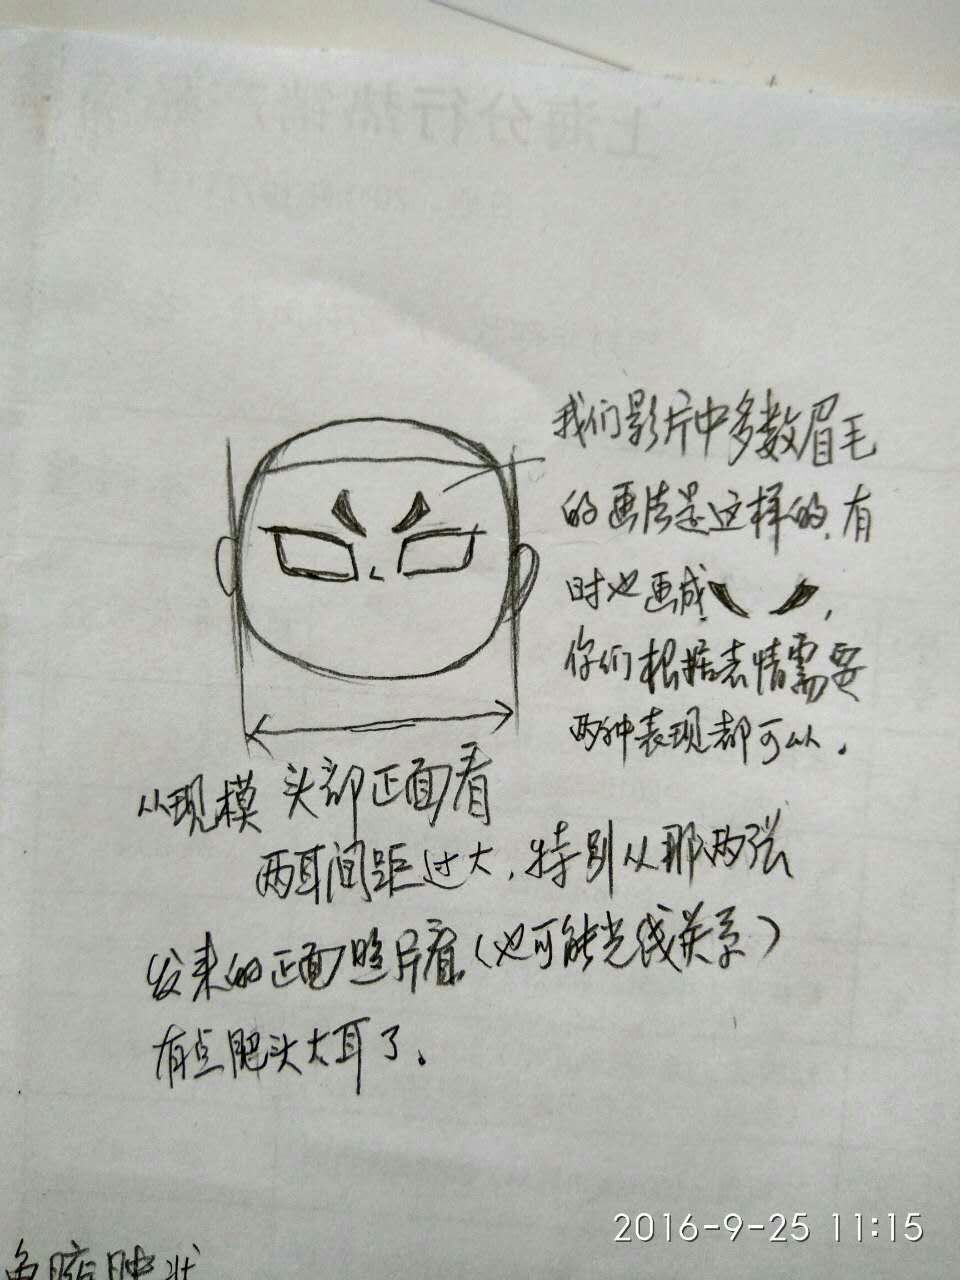 上海分行热销产
我们影片中多数眉毛
的画法是这样的，有
时也画成 ，
你们根据表情需要
两种表现都可以。
从现模 头部正面看
两耳间距过大，特别从那两张
发来的正面照片看（也可能光线关系）
有点肥头大耳了。
2016-9-25 11:15